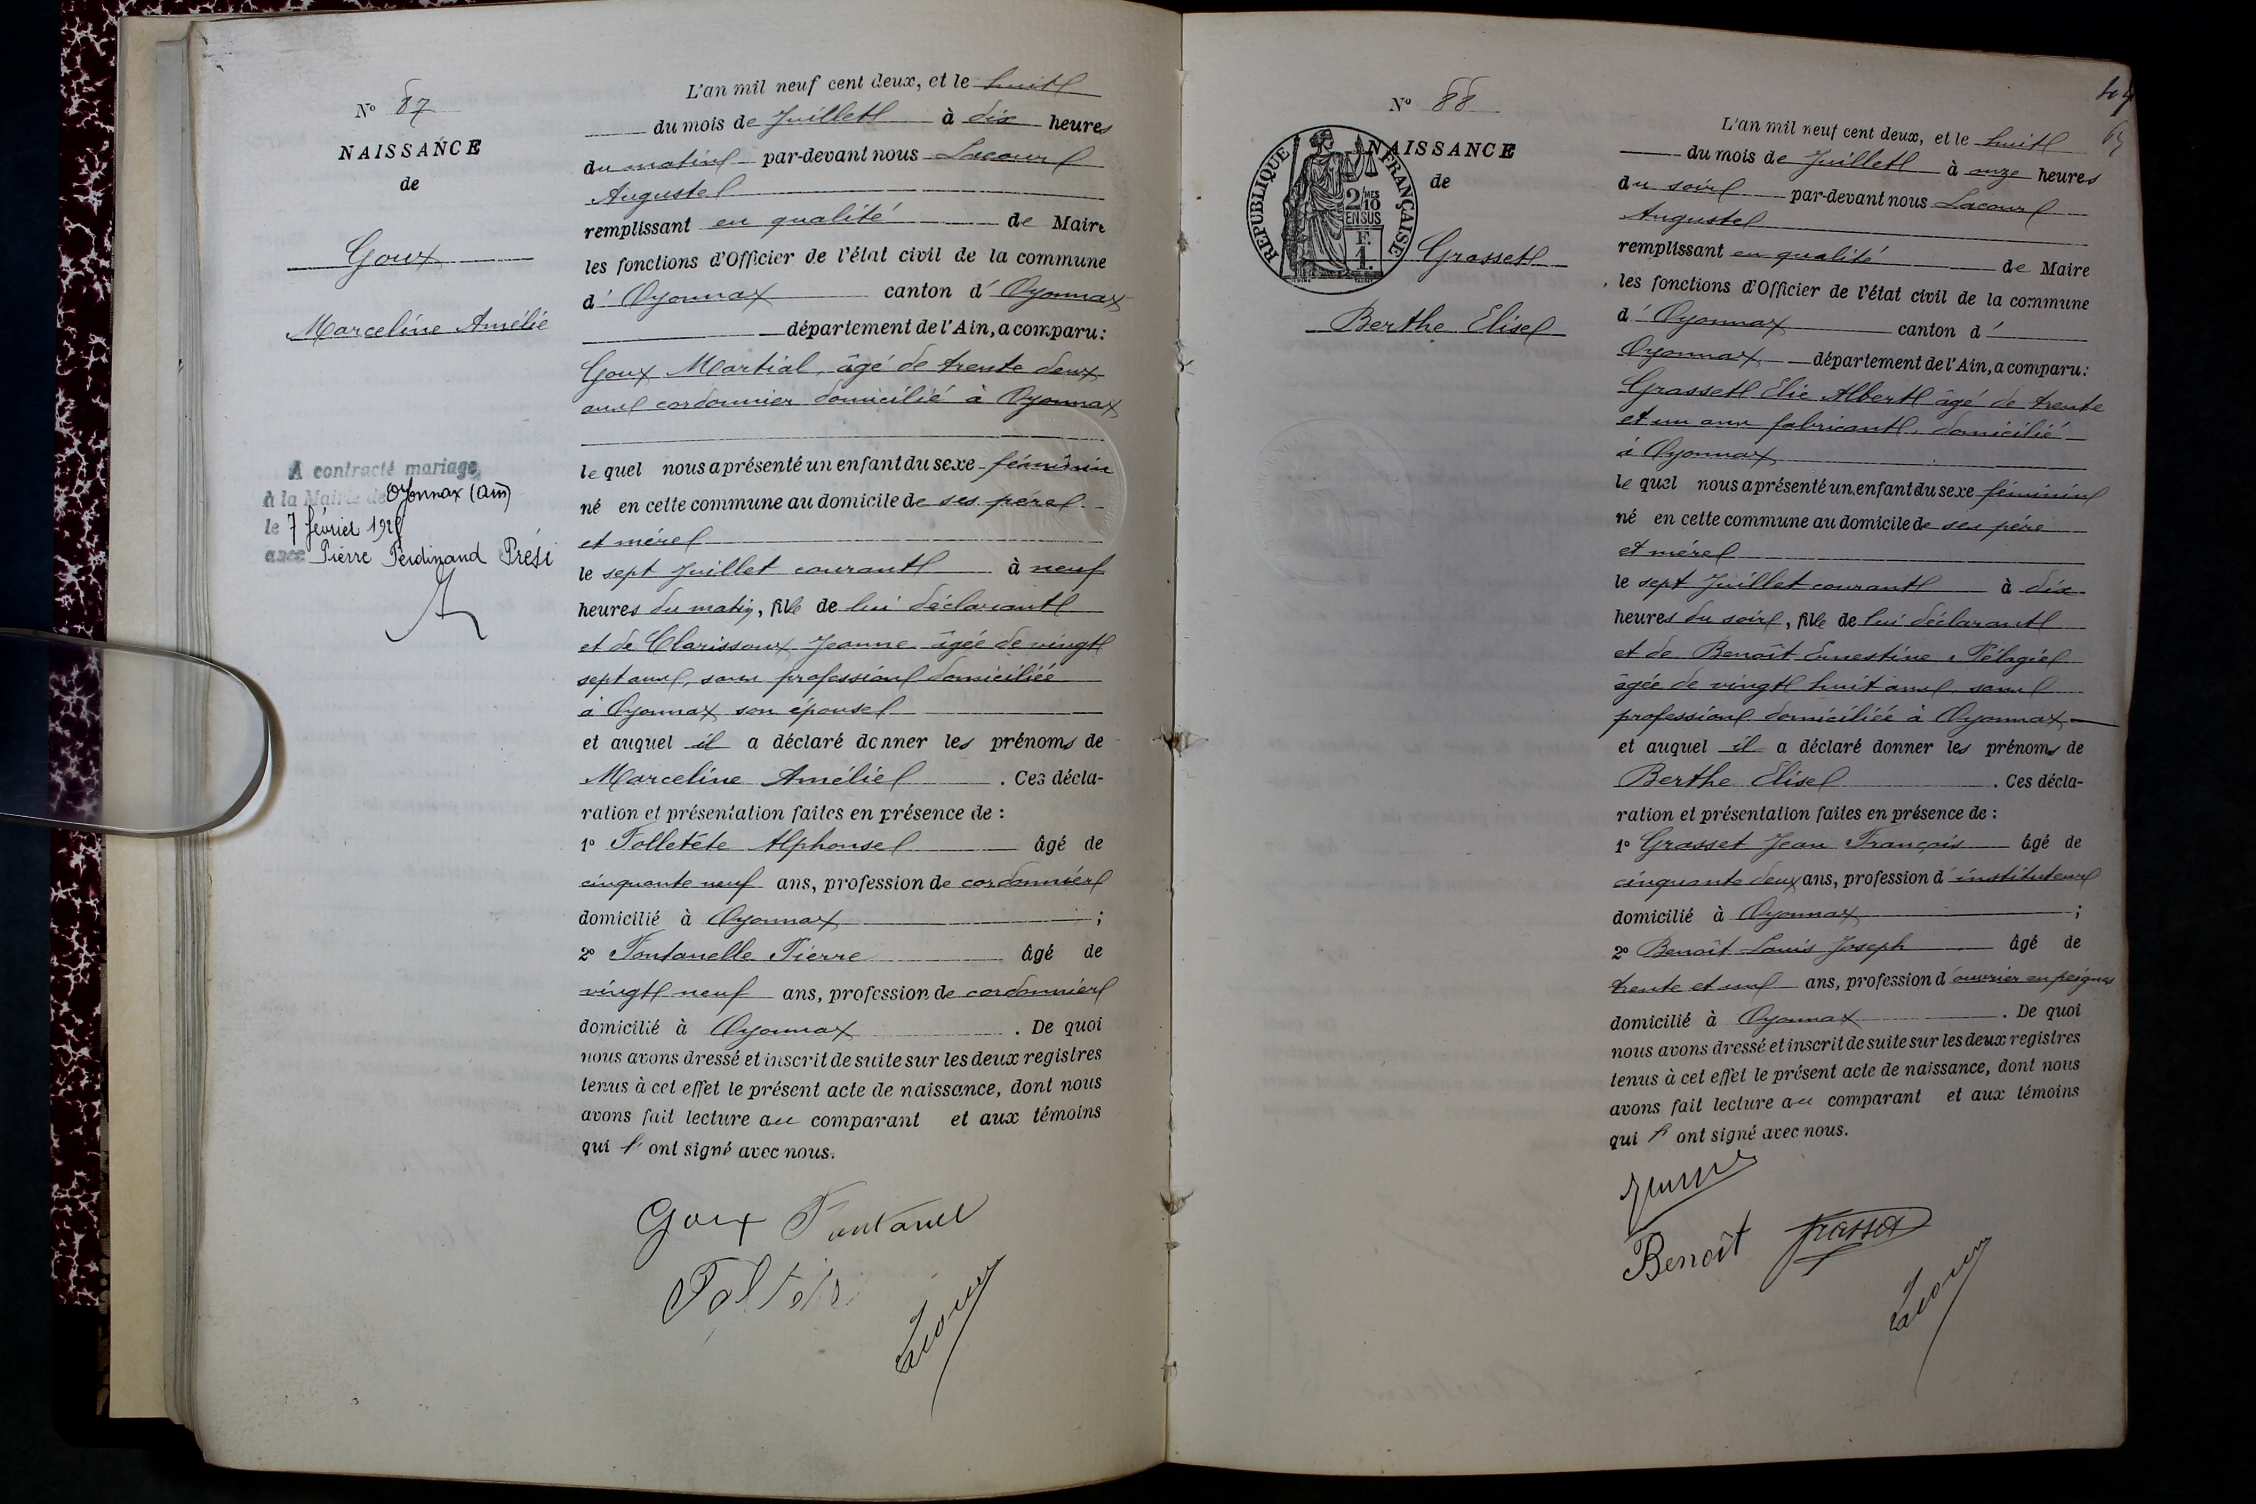 Nº 87
NAISSANCE
de
Goux
Marceline Amélie
A contracté mariage,
à la Mairie de Oyonnax (Ain)
le 7 février 192
avec Pierre Ferdinand Prési
L'an mil neuf cent deux, et le huit
du mois de Juillet à dix heures
du matin par-devant nous Lacour
Auguste
remplissant en qualité de Maire
les fonctions d'Officier de l'état civil de la commune
d' Oyonnax canton d' Oyonnax
département de l'Ain, a comparu :
Goux Martial, âgé de trente deux
ans cordonnier domicilié à Oyonnax
lequel nous a présenté un enfant du sexe féminin
né en cette commune au domicile de ses père
et mère
le sept Juillet courant à neuf
heures du matin, fille de lui déclarant
et de Clarissoux Jeanne âgée de vingt
sept ans, sans profession domiciliée
à Oyonnax son épouse
et auquel il a déclaré donner les prénoms de
Marceline Amélie . Ces décla-
ration et présentation faites en présence de :
1º Folletête Alphonse âgé de
cinquante neuf ans, profession de cordonnier
domicilié à Oyonnax ;
2º Fontanelle Pierre âgé de
vingt neuf ans, profession de cordonnier
domicilié à Oyonnax . De quoi
nous avons dressé et inscrit de suite sur les deux registres
tenus à cet effet le présent acte de naissance, dont nous
avons fait lecture au comparant et aux témoins
qui l' ont signé avec nous.
Goux Fontanel
Lacour
Nº 88
NAISSANCE
de
REPUBLIQUE FRANÇAISE
2/10
MES
EN SUS
F.
1.
Grasset
Berthe Elise
L'an mil neuf cent deux, et le huit
du mois de Juillet à onze heures
du soir par-devant nous Lacour
Auguste
remplissant en qualité de Maire
les fonctions d'Officier de l'état civil de la commune
d' Oyonnax canton d'
Oyonnax département de l'Ain, a comparu :
Grasset Elie Albert âgé de trente
et un ans fabricant, domicilié
à Oyonnax
lequel nous a présenté un enfant du sexe féminin
né en cette commune au domicile de ses père
et mère
le sept Juillet courant à dix
heures du soir, fille de lui déclarant
et de Benoît Ernestine Pélagie
âgée de vingt huit ans, sans
profession domiciliée à Oyonnax
et auquel il a déclaré donner les prénoms de
Berthe Elise . Ces décla-
ration et présentation faites en présence de :
1º Grasset Jean François âgé de
cinquante deux ans, profession d' instituteur
domicilié à Oyonnax ;
2º Benoît Louis Joseph âgé de
trente et un ans, profession d' ouvrier en peignes
domicilié à Oyonnax . De quoi
nous avons dressé et inscrit de suite sur les deux registres
tenus à cet effet le présent acte de naissance, dont nous
avons fait lecture au comparant et aux témoins
qui l' ont signé avec nous.
Benoît Grasset
Lacour